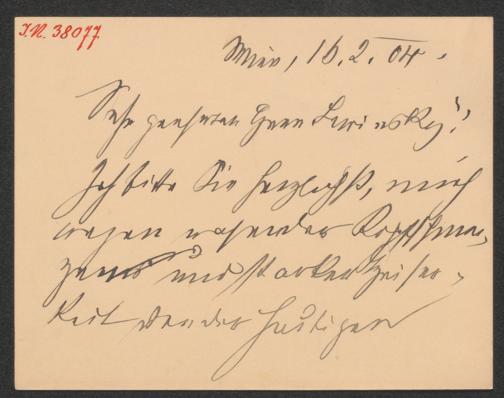 I.N. 38077
Wien, 16. 2. 04.
Sehr geehrter Herr Lewinsky!
Ich bitte Sie herzlichst, mich
wegen rasender Kopfschmer-
zen und starker Heiser-
keit von der heutigen